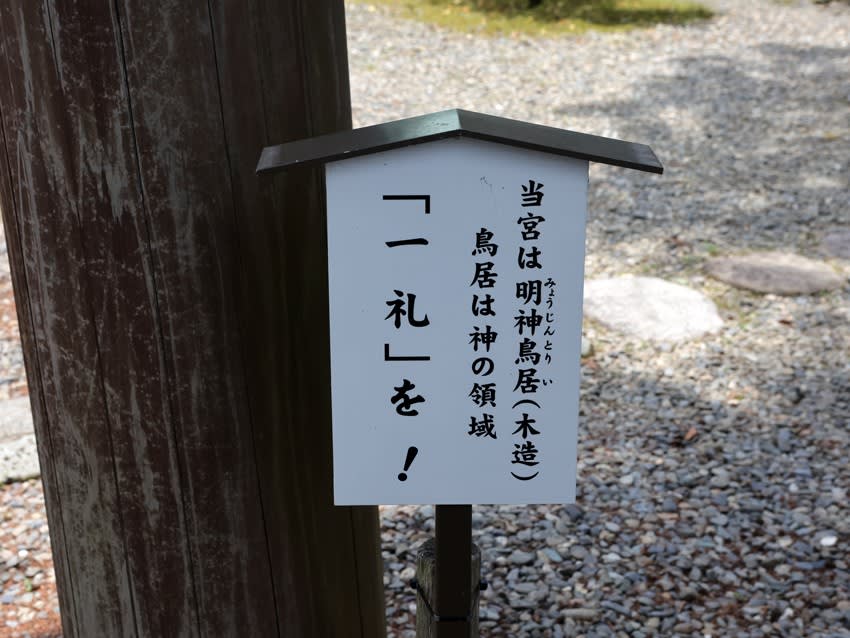 当宮は明神鳥居(木造)
みょうじんとりい
鳥居は神の領域
「一礼」を!